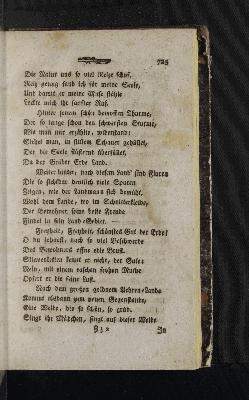 725
Die Natur uns so viel Reize schuf,
Reiz genug fand ich für meine Seele,
Und damit er meine Muse stähle
Lockte mich ihr sanfter Ruf.
Hinter jenem schön bemoosten Thurme,
Der so lange schon den schwersten Sturme,
Wie man mir erzählte, widerstand;
Stehet man, in stillem Schauer gehüllet,
Der die Seele flüsternd überfüllet,
Da der Gräber Erde Land.
Weiter hinter, nach diesem Land sind Fluren
Die so sichtbar deutlich viele Spuren
Zeigen, wie der Landmann sich bemüht,
Wohl dem Lande, wo im Schnitterkleide,
Der Bewohner seine beste Freude
Findet in sein Land-Gebiet. —
Freyheit, Freyheit, schönstes Gut der Erde!
O du lohnest, nach so viel Beschwerde
Des Bewohners offne edle Brust.
Sklavenketten kennt er nicht, der Gute;
Nein, mit einem raschen frohen Muthe
Opfert er die seine Lust.
Nach dem großen goldnem Aehren-Lande
Kommt alsdann zum neuen Gegenstande,
Eine Weide, die so schön, so grün.
Singt ihr Mädchen, singt auf dieser Weide
In